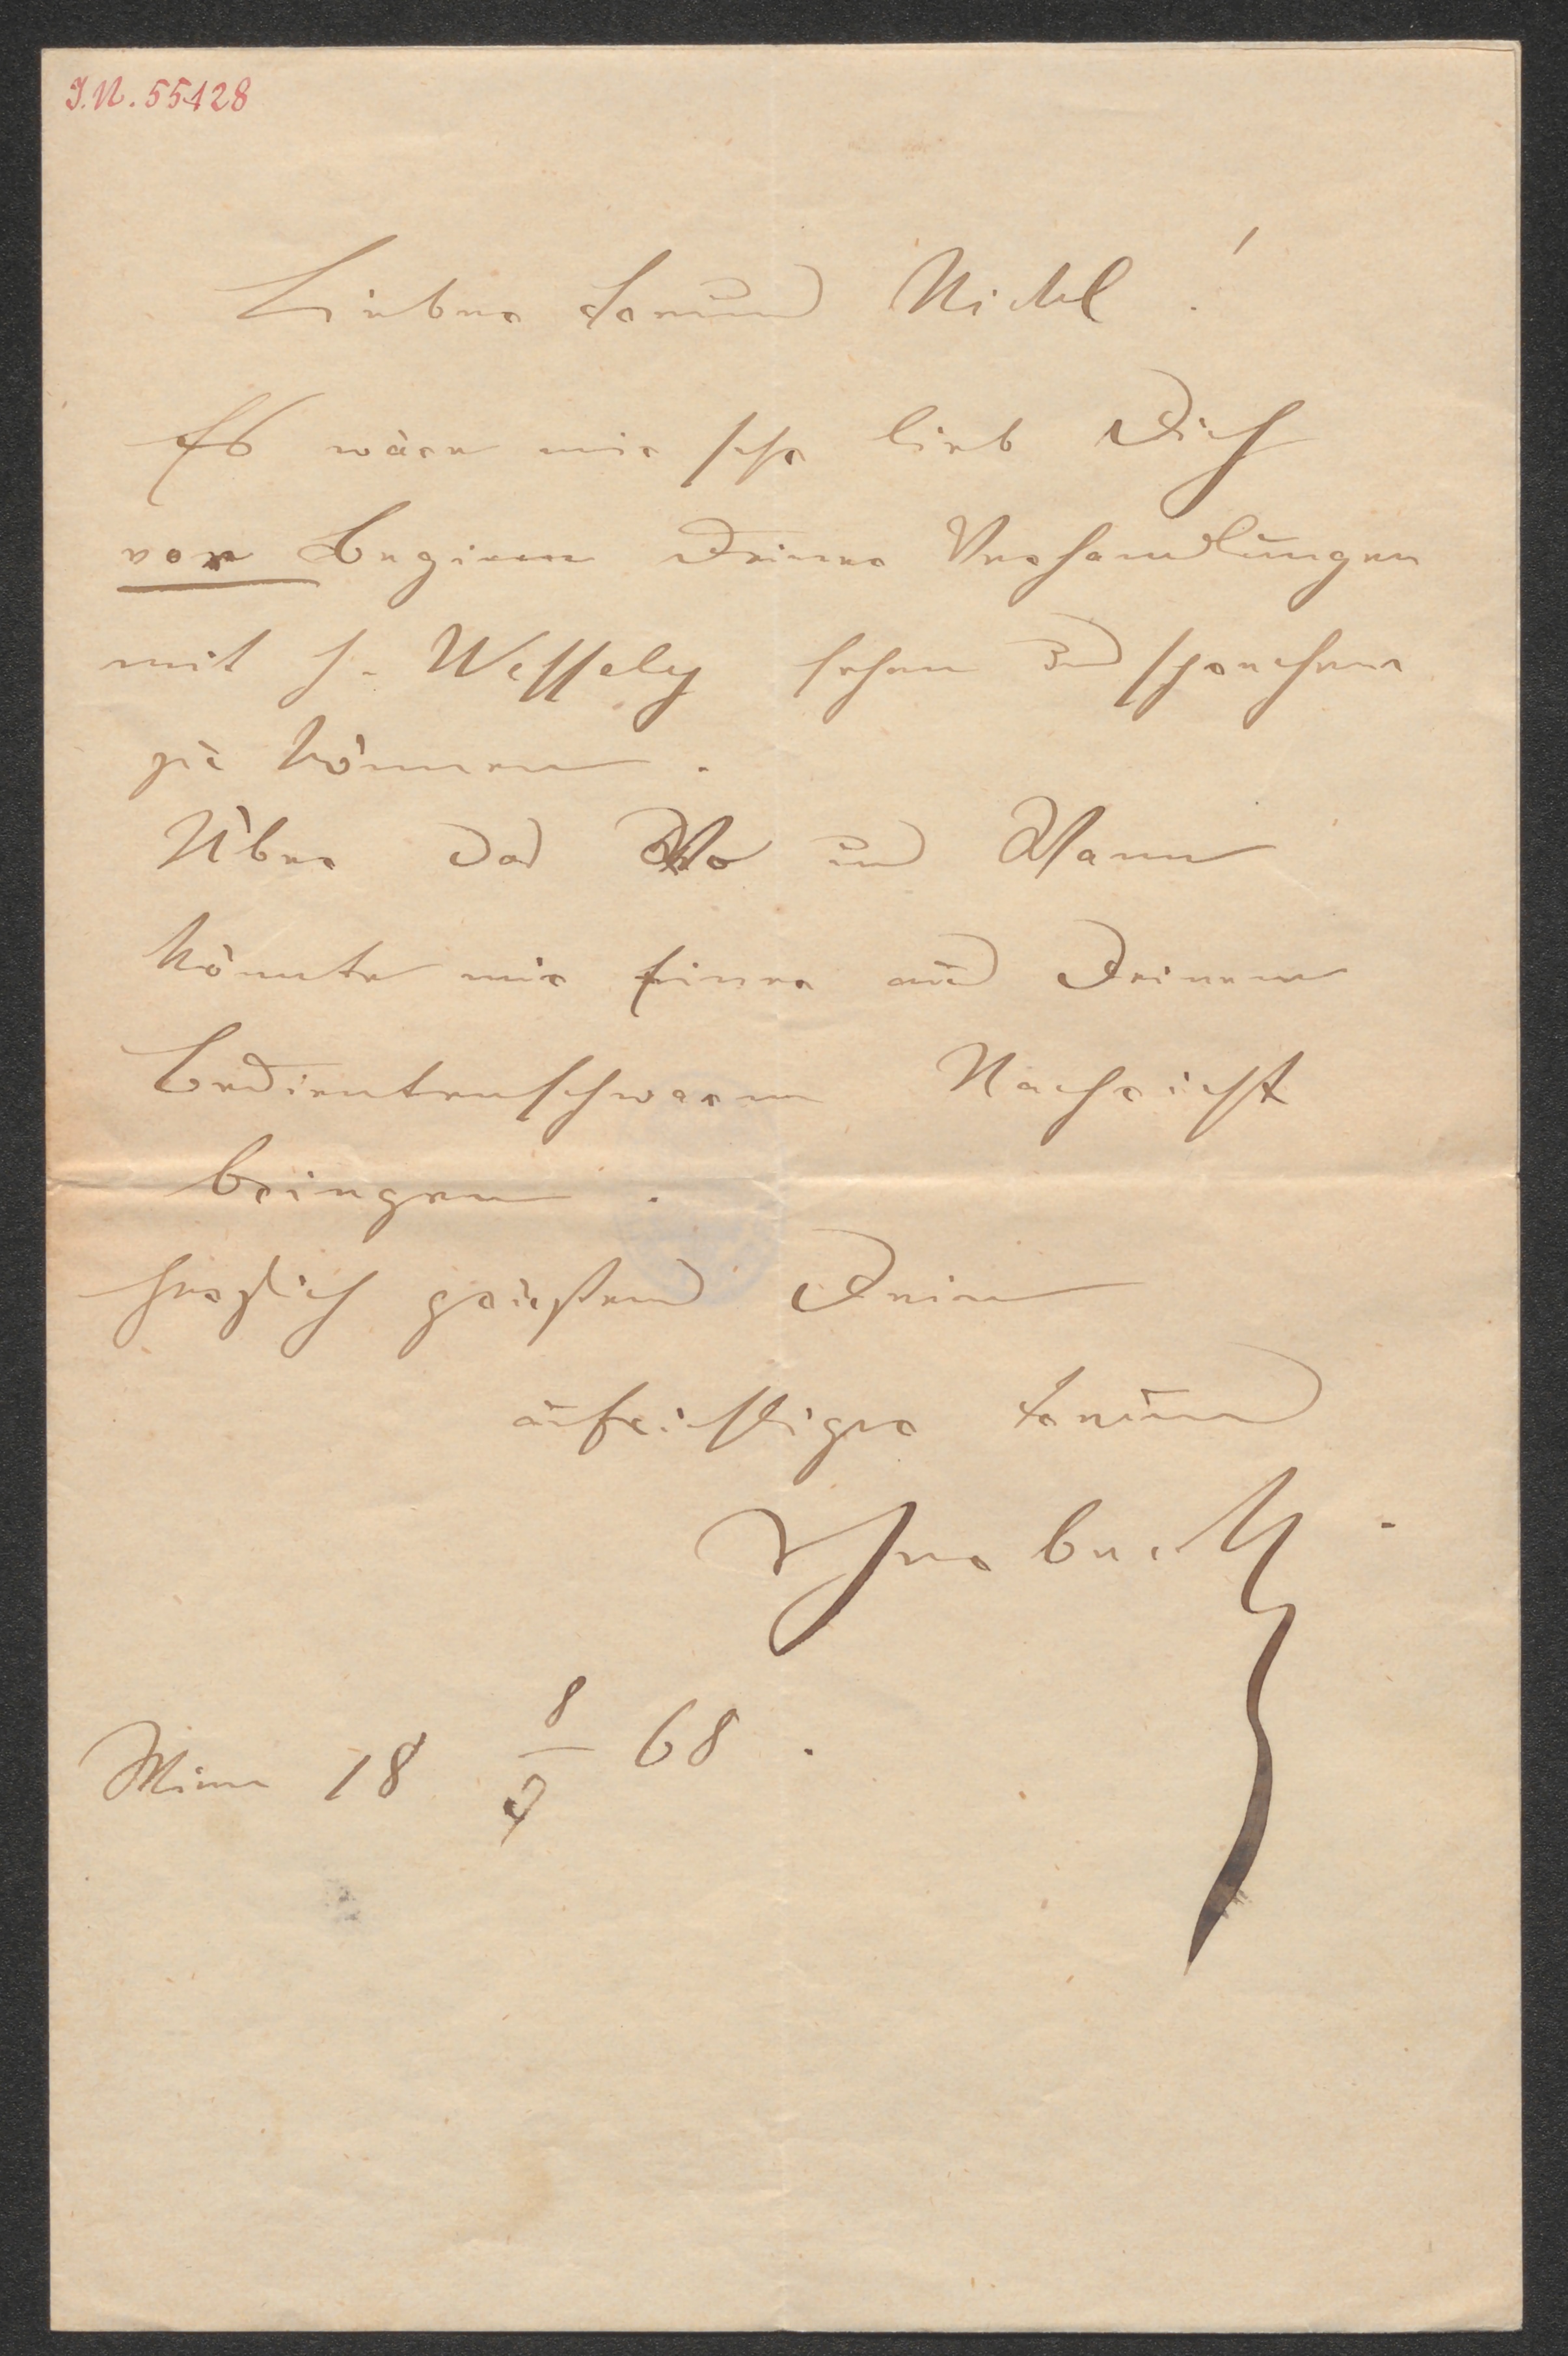 I.N. 55128
Lieber Freund Nickl!
Es wäre mir sehr lieb Dich
vor Beginn Deiner Verhandlungen
mit H. Wessely sehen und sprechen
zu können.
Über das Wo und Wann
könnte mir Einer aus Deinem
Bedientenschwarm Nachricht
bringen.
Herzlich grüßend Dein
aufrichtiger Freund
Herbeck.
Wien 18 8/9 68.